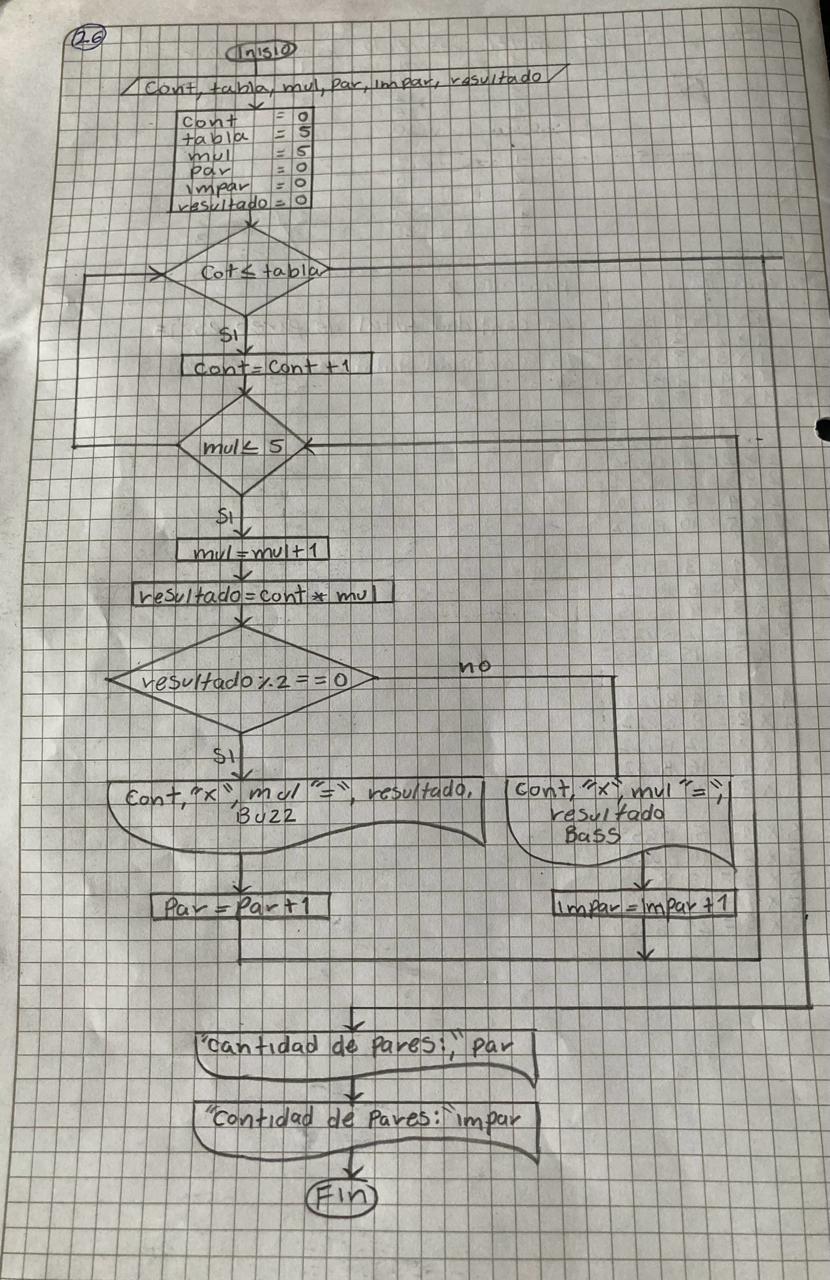 26
Inisio
Cont, tabla, mul, par, impar, resultado
cont = 0
tabla = 5
mul = 5
par = 0
impar = 0
resultado = 0
Cot ≤ tabla
SI
cont = cont + 1
mul ≤ 5
SI
mul = mul + 1
resultado = cont * mul
resultado % 2 == 0
no
SI
Cont, "x", mul "=", resultado,
Buzz
Cont, "x", mul "=",
resultado
Bass
Par = Par + 1
impar = impar + 1
"Cantidad de Pares:," par
"Contidad de Pares:" impar
Fin